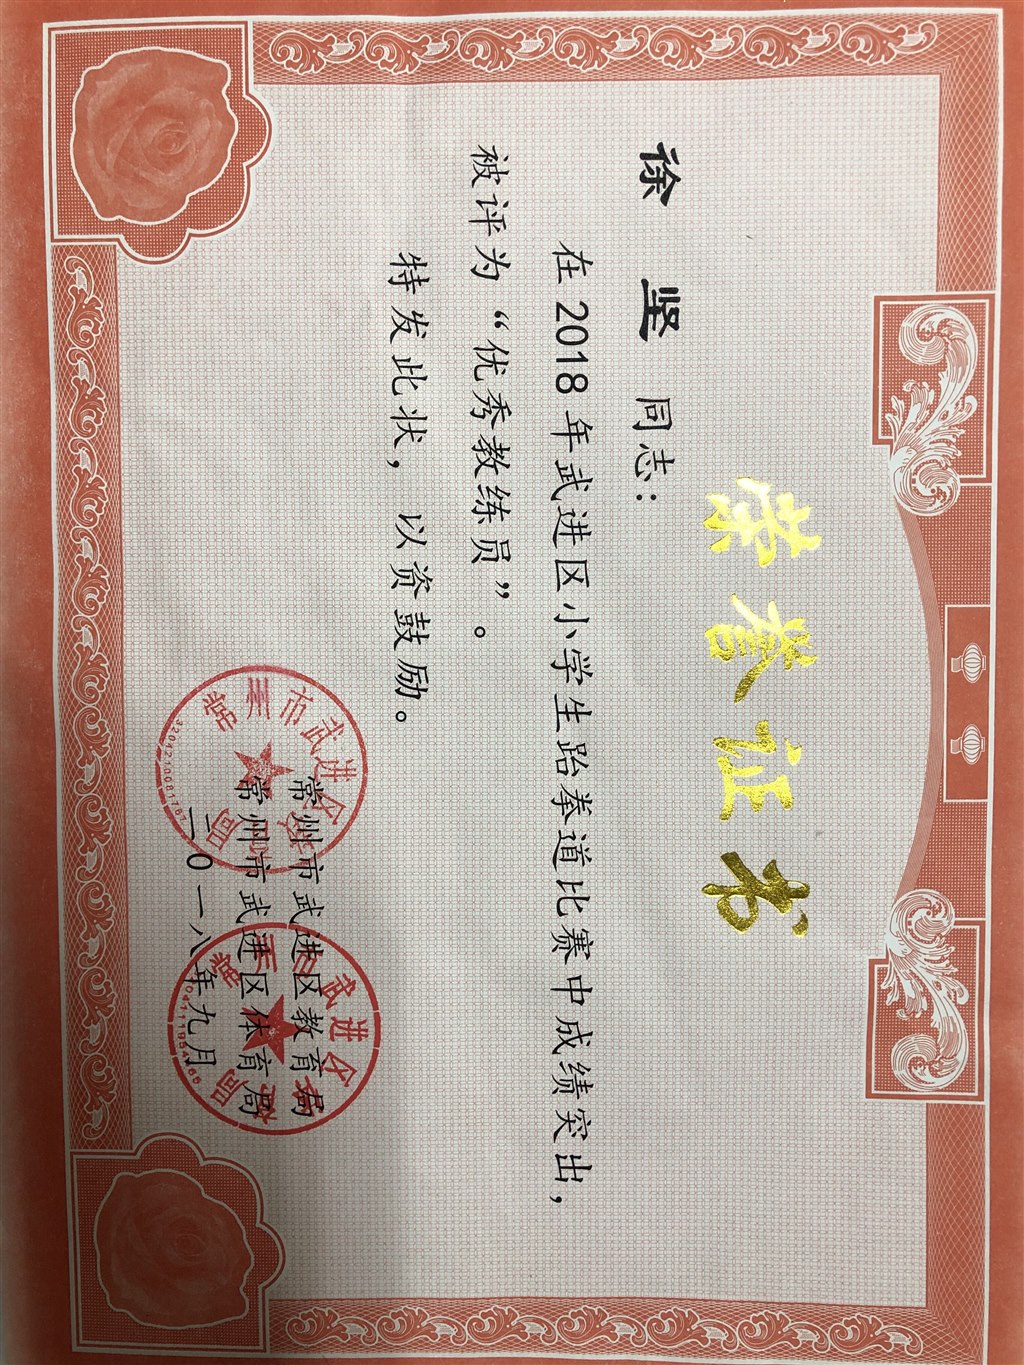 荣誉证书
徐 坚 同志：
在 2018 年武进区小学生跆拳道比赛中成绩突出，
被评为“优秀教练员”。
特发此状，以资鼓励。
常州市武进区教育局
常州市武进区体育局
二0一八年九月
常州市武进区
武进区